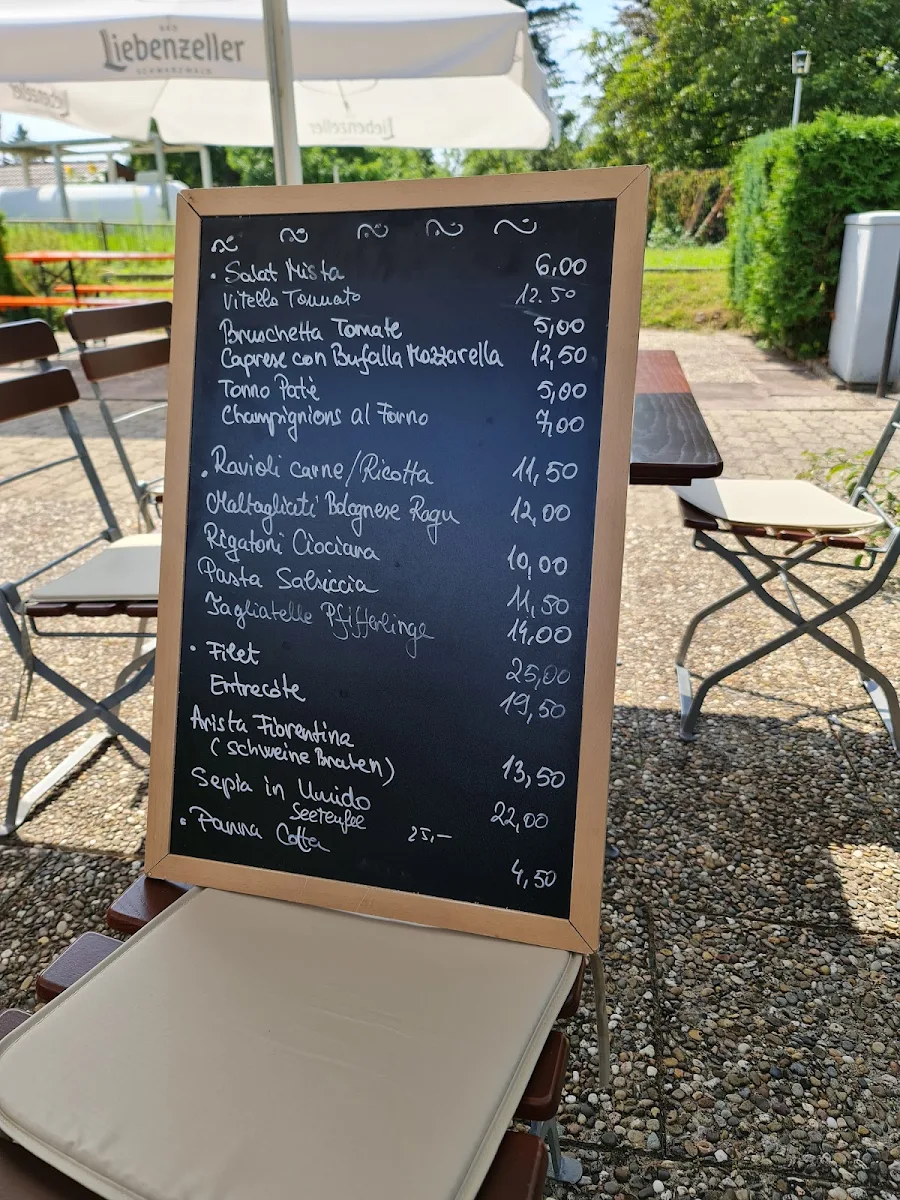 BAD
Liebenzeller
SCHWARZWALD
Liebenzeller
• Salat Mista 6,00
Vitello Tonnato 12.50
Bruschetta Tomate 5,00
Caprese con Bufalla Mozzarella 12,50
Tonno Patè 5,00
Champignions al Forno 7,00
• Ravioli carne/Ricotta 11,50
Maltagliati Bolagnese Ragu 12,00
Rigatoni Ciociara 10,00
Pasta Salsiccia 11,50
Tagliatelle Pfifferlinge 14,00
• Filet 25,00
Entrecôte 19,50
Arista Fiorentina
(schweine Braten) 13,50
Sepia in Umido 22,00
Seeteufel 25,-
• Panna Cotta 4,50